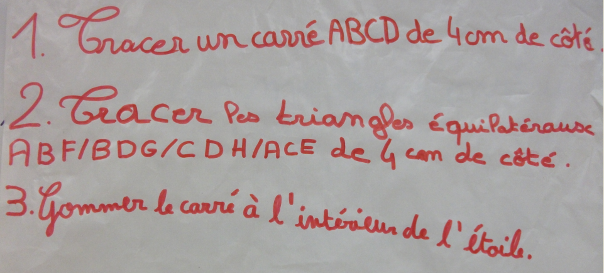 1. Tracer un carré ABCD de 4 cm de côté.
2. Tracer les triangles équilatéraux
ABF/BDG/CDH/ACE de 4 cm de côté.
3. Gommer le carré à l'intérieur de l'étoile.